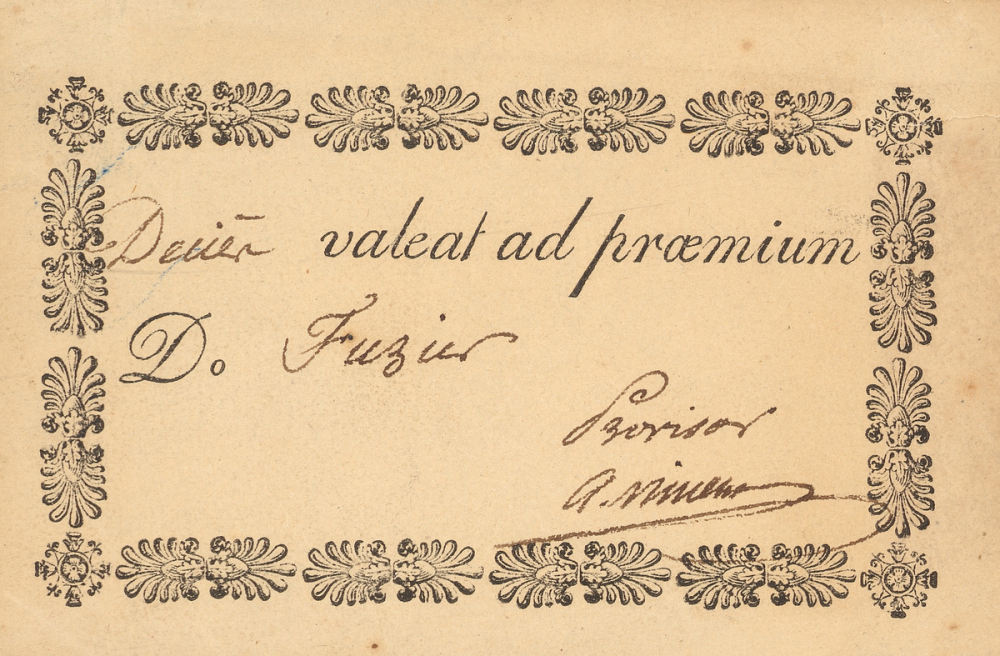 valeat ad præmium
D. Fuzier
Provisor